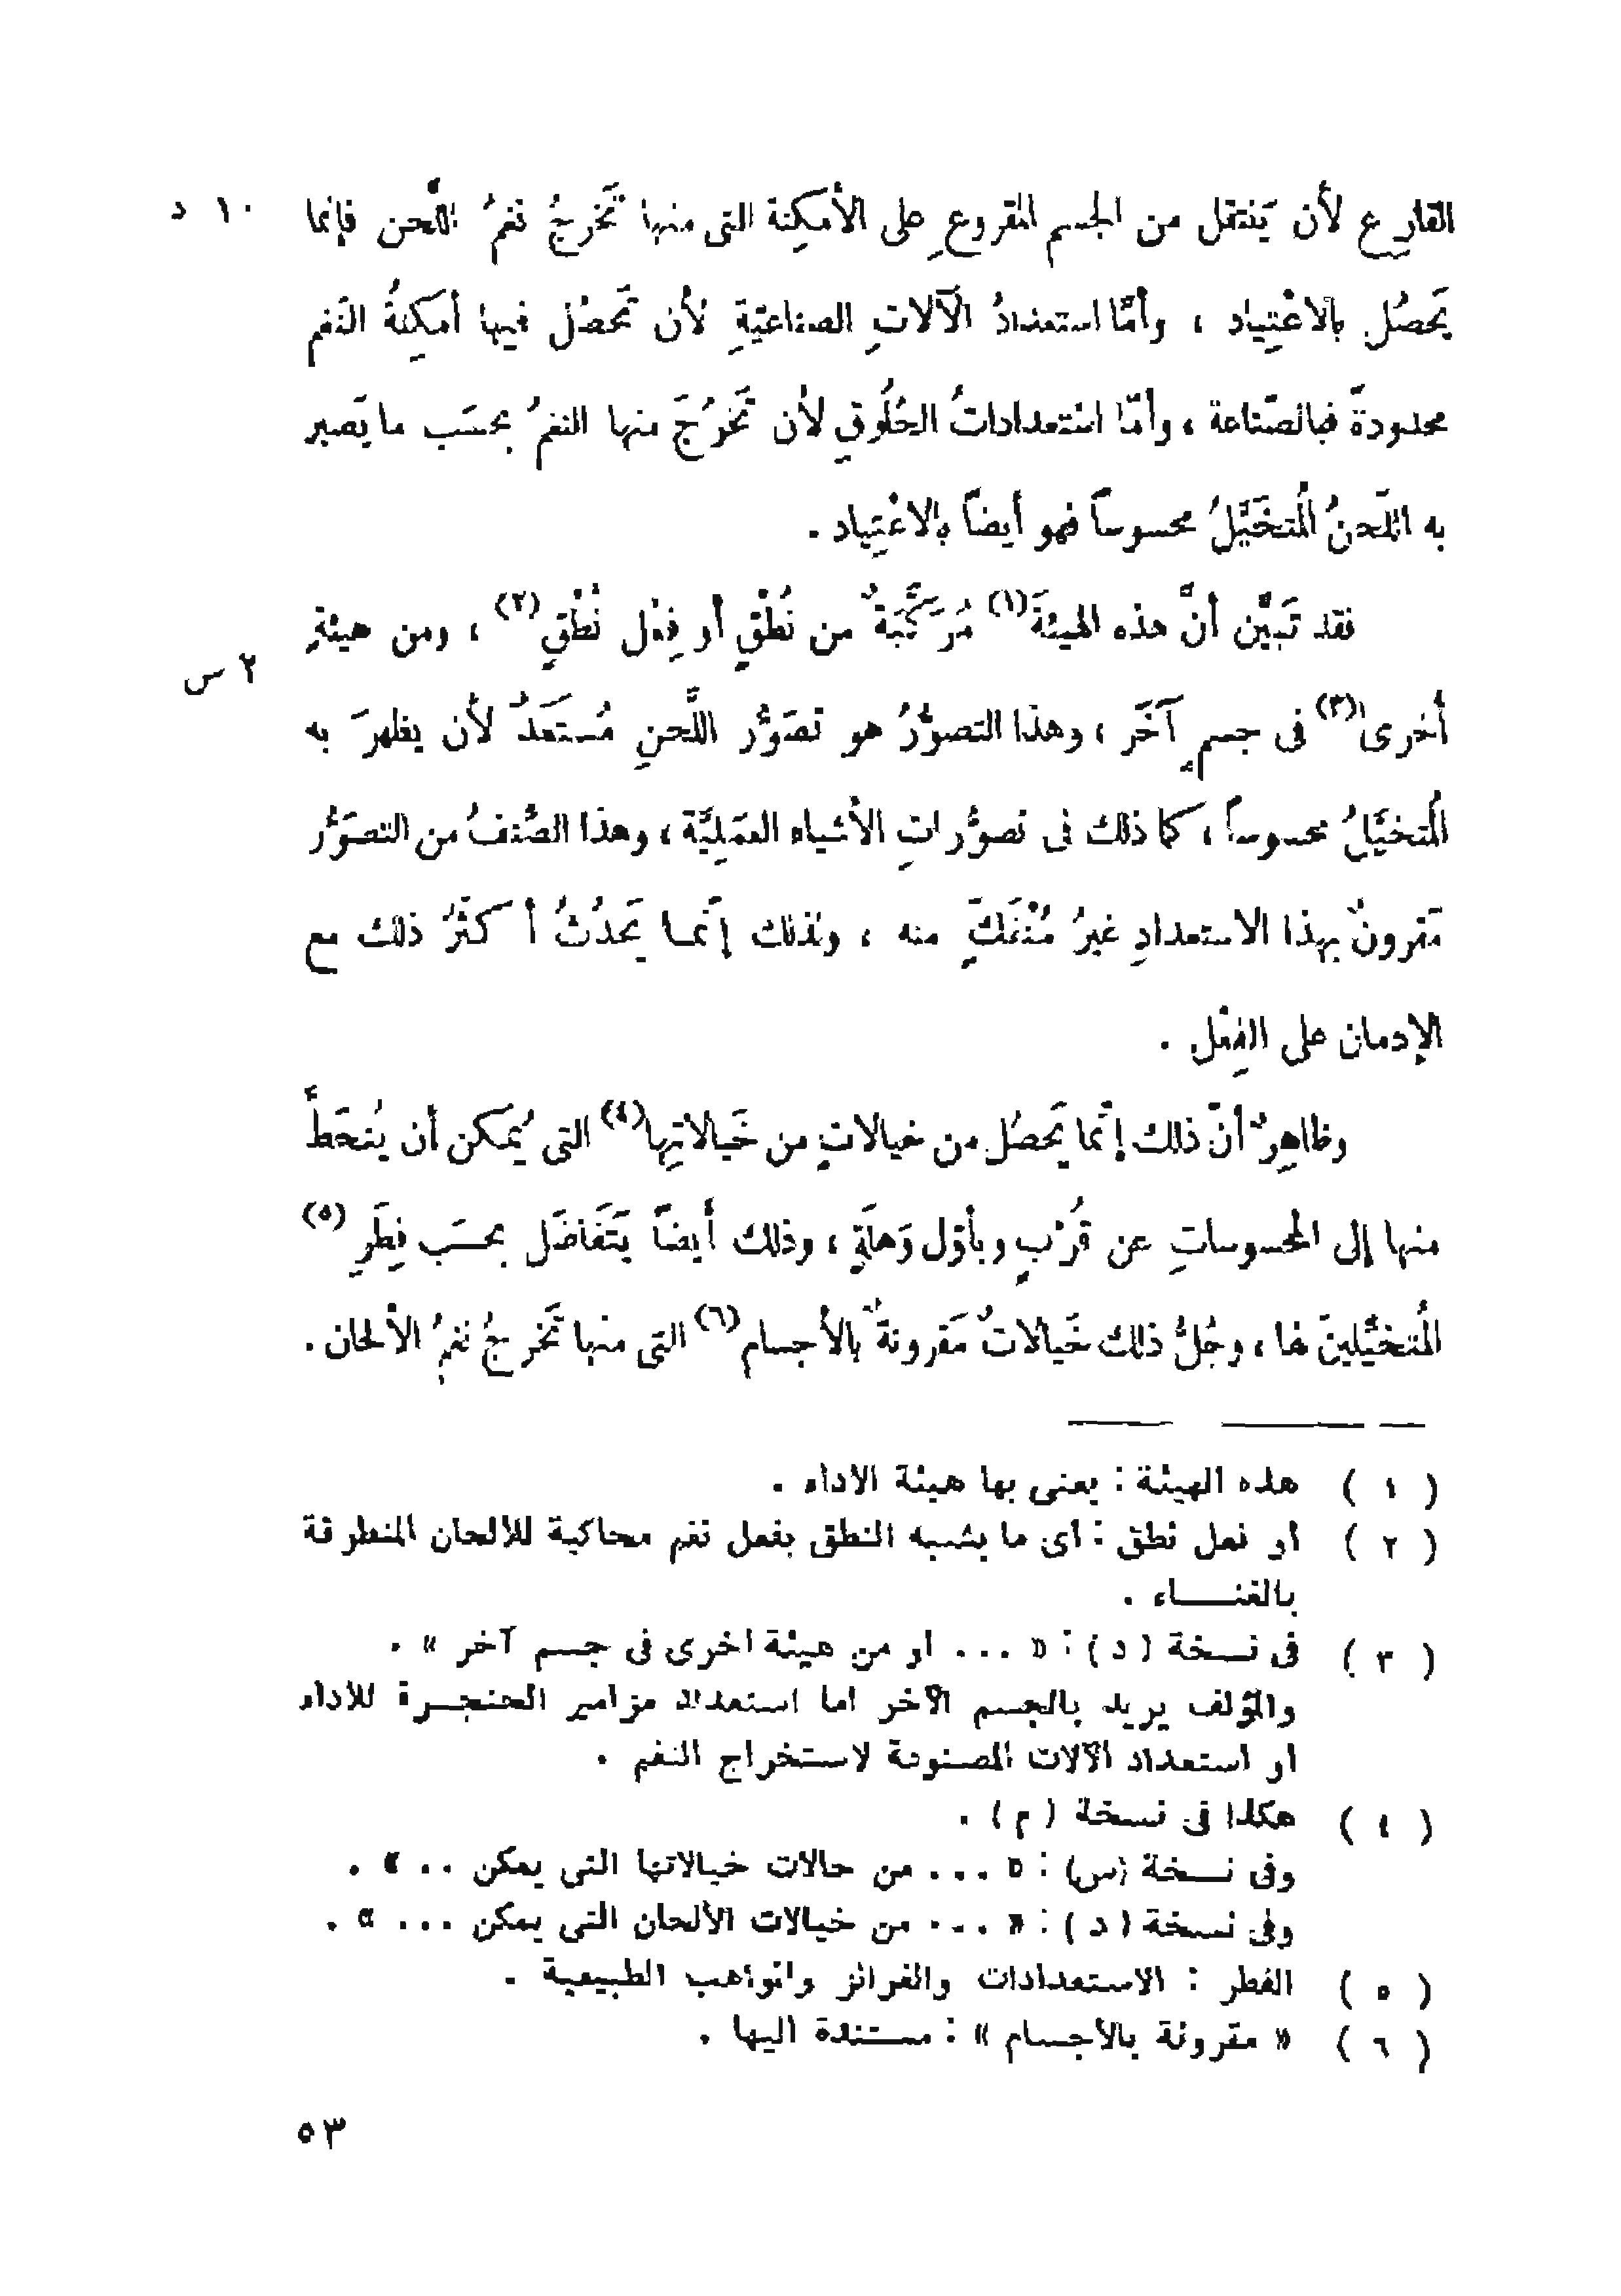 القارِع لأن يَنتقل من الجسم المقروعِ على الأمكِنة التى منها تَخرجُ نغمُ اللَّحن فإنما ١٠ د
يَحصُل بالاعْتِياد ، وأمّا استعدادُ الآلاتِ الصناعيّةِ لأن تَحصُل فيها أمكِنةُ النَغم
محدودةً فبالصّناعة ، وأمّا اسْتعداداتُ الحُلُوقِ لأن تَخرُجَ منها النغمُ بحسَب ما يَصير
به اللّحنُ المُتخَيَّلُ محسوساً فهو أيضاً بالاعْتِياد .
فقد تَبيَّن أنَّ هذه الهيئةَ (١) مُرَكَّبَةٌ من نُطْقٍ أو فِعْل نُطْقٍ (٢) ، ومن هيئةٍ
٢ س
أُخرى (٣) فى جسمٍ آخَر ، وهذا التصوُّرُ هو تصَوُّر اللَّحنِ مُستَعَدٌّ لأن يظهرَ به
المُتخيَّلُ محسوساً ، كما ذلك فى تصوُّراتِ الأشياء العمَلِيَّة ، وهذا الصِّنفُ من التصَوُّر
مَقرونٌ بهذا الاستعدادِ غيرُ مُنْفَكٍّ منه ، ولذلك إنَّما يَحدُثُ أكثرُ ذلك مع
الإدمان على الفِعْل .
وظاهِرٌ أنّ ذلك إنّما يَحصُل من خيالاتٍ من خَيالاتِها (٤) التى يُمكن أن يُنحَطَّ
منها إلى المحسوساتِ عن قُرْبٍ وبأوّل وَهلَةٍ ، وذلك أيضاً يَتَفاضَل بحسَب فِطَرِ (٥)
المُتخيِّلينَ لها ، وجُلُّ ذلك خَيالاتٌ مَقرونةٌ بالأجسام (٦) التى منها تَخرجُ نغمُ الألحان .
( ١ ) هذه الهيئة : يعنى بها هيئة الاداء .
( ٢ ) او فعل نطق : اى ما يشبه النطق بفعل نغم محاكية للالحان المنطرقة
بالغنــاء .
( ٣ ) فى نسخة ( د ) : « ... او من هيئة اخرى فى جسم آخر » .
والمؤلف يريد بالجسم الآخر اما استعداد مزامير الحنجرة للأداء
او استعداد الآلات المصنوعة لاستخراج النغم .
( ٤ ) هكذا فى نسخة ( م ) .
وفى نسخة (س) : « ... من حالات خيالاتها التى يمكن .. » .
وفى نسخة ( د ) : « ... من خيالات الألحان التى يمكن ... » .
( ٥ ) الفطر : الاستعدادات والغرائز والمواهب الطبيعية .
( ٦ ) « مقرونة بالاجسام » : مستندة اليها .
٥٣